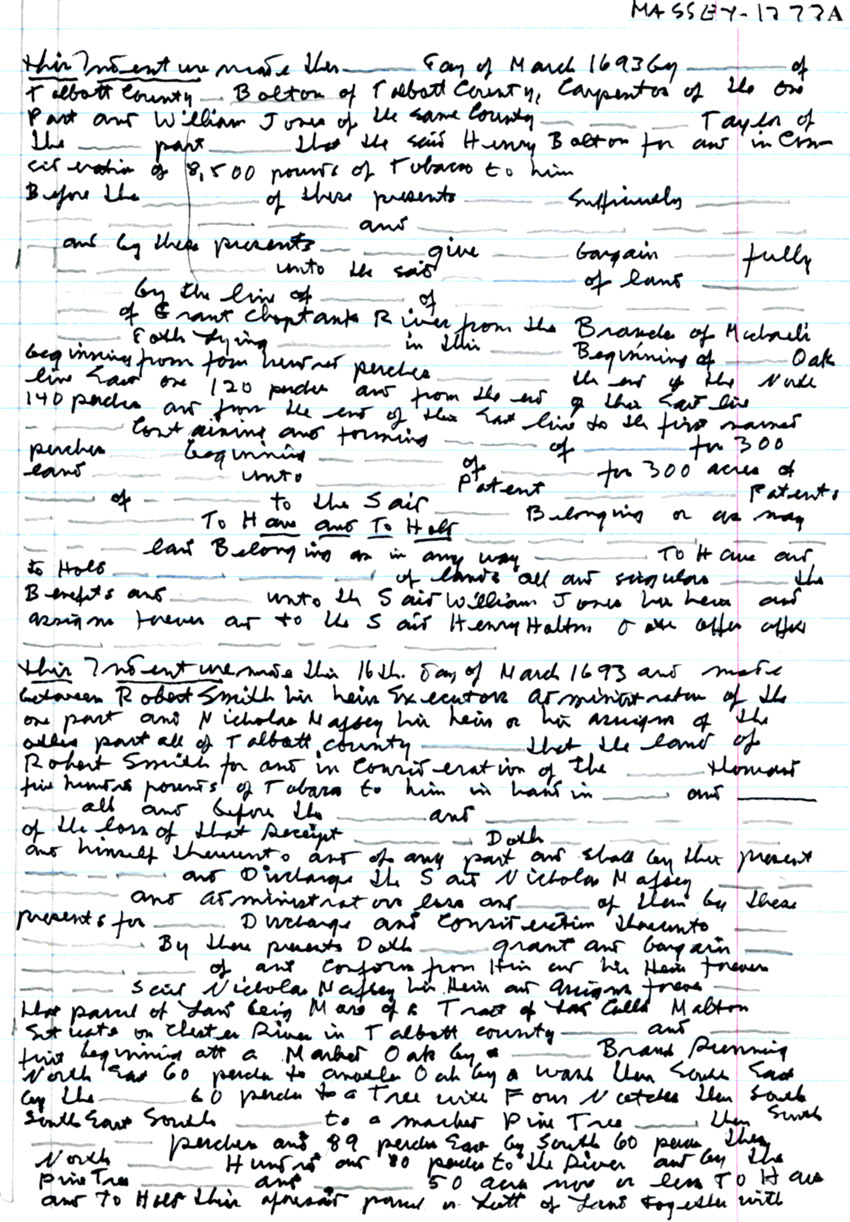 MASSEY-1277A
this Indenture made this ______ Day of March 1693 by ______ of
Talbott County ___ Bolton of Talbott County, Carpenter of the one
Part and William Jones of the same County ______ ______ Taylor of
the ______ part ______ that the said Henry Bolton for and in Con-
sideration of 8,500 pounds of Tobacco to him
Before the ______ of these presents ______ ______
______ and ______
and by these presents ______ give ______ bargain ______ fully
______ unto the said ______ of land ______
by the line of ______ of
of Grant Choptank River from the Branch of
______ Doth Lying ______ in this ______ Beginning of ______ Oak
beginning from four hundred perches ______ the end of the North
line East one 120 perches and from the end of this East line
140 perches and from the end of this East line to the first named
______ Containing and forming ______ of ______ for 300
perches ______ beginning ______ of ______ for 300 acres of
land ______ unto ______ Patent ______ Patents
______ of ______ to the Said ______ Belonging or as may
______ To Have and To Hold
______ land Belonging or in any way ______ To Have and
to Hold ______ of lands all and singular ______ the
Benefits and ______ unto the Said William Jones his heirs and
assigns forever and to the Said Henry
this Indenture made this 16th. Day of March 1693 and made
between Robert Smith his heirs Executors Administrators of the
one part and Nicholas Massey his heirs or his assigns of the
other part all of Talbott County ______ that the land of
Robert Smith for and in Consideration of the ______ thousand
five hundred pounds of Tobacco to him in hand in ______ and ______
______ all and before the ______ and ______
of the loss of that Receipt ______ Doth ______
and himself thereunto and of any part and shall by these present
______ and Discharge the Said Nicholas Massey ______
______ and Administrators ______ and ______ of them by these
presents for ______ Discharge and Consideration thereunto
______ By these presents Doth ______ grant and bargain
______ of and Confirm from Him and his Heirs forever
______ Said Nicholas Massey his Heirs and assigns forever
that parcel of Land being More of a Tract of Land Called Malton
Situate on Chester River in Talbott County ______ and ______
first beginning att a Marked Oak by a ______ Branch Running
North East 60 perches to another Oak by a ______ then South East
by the ______ 60 perches to a Tree with Four Notches then South
South East South ______ to a marked Pine Tree ______ then South
______ perches and 89 perches East by South 60 perches then
North ______ Hundred and 80 perches to the River and by the
Pine Tree ______ and ______ 50 acres more or less To Have
and To Hold this aforesaid parcel or Lott of Land together with